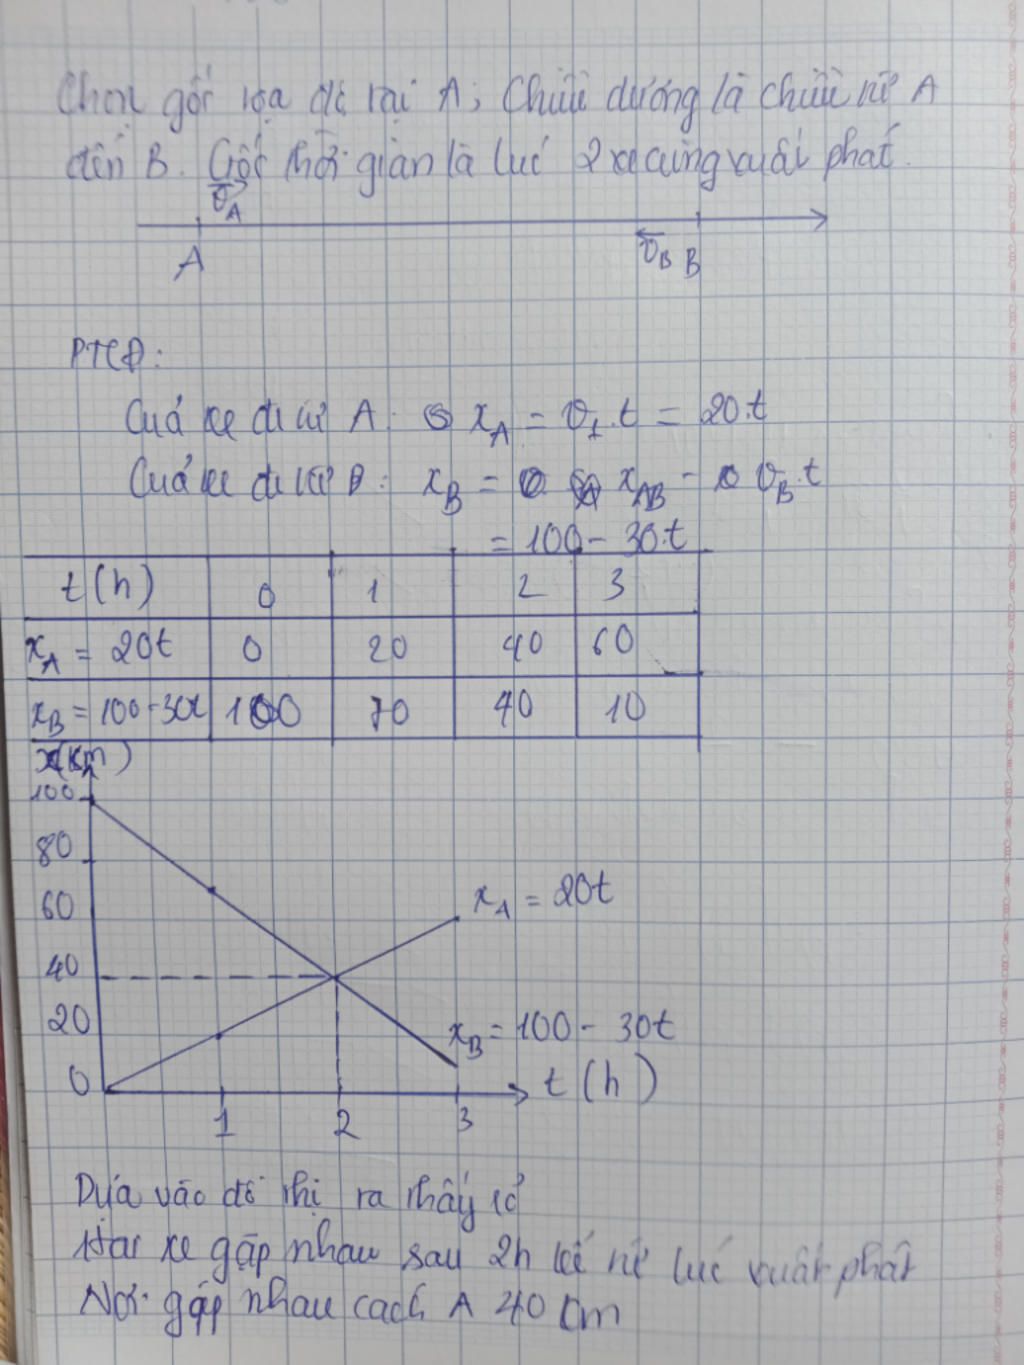 Chọn gốc tọa độ tại A; Chiều dương là chiều từ A
đến B. Gốc thời gian là lúc 2 xe cùng xuất phát.
v_A
A
v_B B
PTCĐ:
Của xe đi từ A: x_A = v_1.t = 20.t
Của xe đi từ B: x_B = x_AB - v_B.t
= 100 - 30.t
t(h) 0 1 2 3
x_A = 20t 0 20 40 60
x_B = 100-30t 100 70 40 10
x(km)
100
80
60
x_A = 20t
40
20
x_B = 100 - 30t
0
t (h)
1 2 3
Dựa vào đồ thị ta thấy có
Hai xe gặp nhau sau 2h kể từ lúc xuất phát
Nơi gặp nhau cách A 40 km